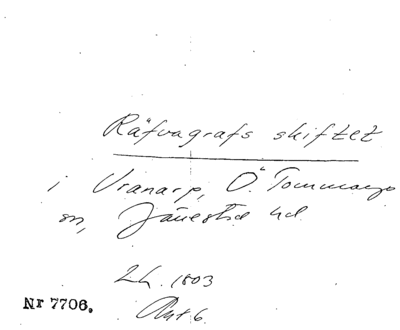 Räfvagrafs skiftet
i Vranarp, Ö Tommarps
sn, Järrestad hd
L.h. 1803
Akt 6.
Nr 7706.